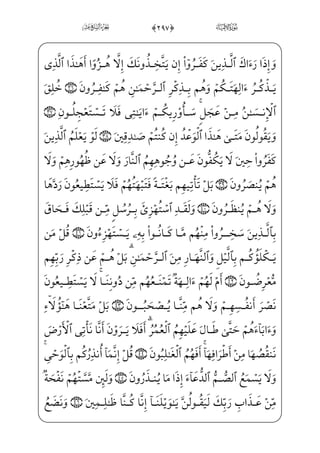 الجزء السابع عشر ﴿٢٩٧﴾ سورة الأنبياء
وَإِذَا رَءَاكَ ٱلَّذِينَ كَفَرُوٓا۟ إِن يَتَّخِذُونَكَ إِلَّا هُزُوًا أَهَٰذَا ٱلَّذِى
يَذْكُرُ ءَالِهَتَكُمْ وَهُم بِذِكْرِ ٱلرَّحْمَٰنِ هُمْ كَٰفِرُونَ ٣٦ خُلِقَ
ٱلْإِنسَٰنُ مِنْ عَجَلٍ ۚ سَأُو۟رِيكُمْ ءَايَٰتِى فَلَا تَسْتَعْجِلُونِ ٣٧
وَيَقُولُونَ مَتَىٰ هَٰذَا ٱلْوَعْدُ إِن كُنتُمْ صَٰدِقِينَ ٣٨ لَوْ يَعْلَمُ ٱلَّذِينَ
كَفَرُوا۟ حِينَ لَا يَكُفُّونَ عَن وُجُوهِهِمُ ٱلنَّارَ وَلَا عَن ظُهُورِهِمْ وَلَا
هُمْ يُنصَرُونَ ٣٩ بَلْ تَأْتِيهِم بَغْتَةً فَتَبْهَتُهُمْ فَلَا يَسْتَطِيعُونَ رَدَّهَا
وَلَا هُمْ يُنظَرُونَ ٤٠ وَلَقَدِ ٱسْتُهْزِئَ بِرُسُلٍ مِّن قَبْلِكَ فَحَاقَ
بِٱلَّذِينَ سَخِرُوا۟ مِنْهُم مَّا كَانُوا۟ بِهِۦ يَسْتَهْزِءُونَ ٤١ قُلْ مَن
يَكْلَؤُكُم بِٱلَّيْلِ وَٱلنَّهَارِ مِنَ ٱلرَّحْمَٰنِ ۗ بَلْ هُمْ عَن ذِكْرِ رَبِّهِم
مُّعْرِضُونَ ٤٢ أَمْ لَهُمْ ءَالِهَةٌ تَمْنَعُهُم مِّن دُونِنَا ۚ لَا يَسْتَطِيعُونَ
نَصْرَ أَنفُسِهِمْ وَلَا هُم مِّنَّا يُصْحَبُونَ ٤٣ بَلْ مَتَّعْنَا هَٰٓؤُلَآءِ
وَءَابَآءَهُمْ حَتَّىٰ طَالَ عَلَيْهِمُ ٱلْعُمُرُ ۗ أَفَلَا يَرَوْنَ أَنَّا نَأْتِى ٱلْأَرْضَ
نَنقُصُهَا مِنْ أَطْرَافِهَآ ۚ أَفَهُمُ ٱلْغَٰلِبُونَ ٤٤ قُلْ إِنَّمَآ أُنذِرُكُم بِٱلْوَحْىِ ۚ
وَلَا يَسْمَعُ ٱلصُّمُّ ٱلدُّعَآءَ إِذَا مَا يُنذَرُونَ ٤٥ وَلَئِن مَّسَّتْهُمْ نَفْحَةٌ
مِّنْ عَذَابِ رَبِّكَ لَيَقُولُنَّ يَٰوَيْلَنَآ إِنَّا كُنَّا ظَٰلِمِينَ ٤٦ وَنَضَعُ